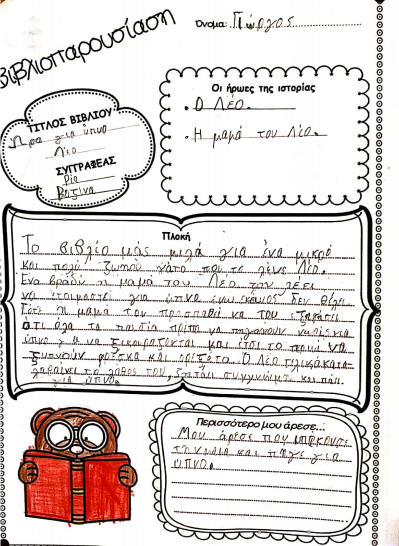 Βιβλιοπαρουσίαση
Όνομα: Γιώργος
ΤΙΤΛΟΣ ΒΙΒΛΙΟΥ
Ώρα για ύπνο
Λέο
ΣΥΓΓΡΑΦΕΑΣ
Οι ήρωες της ιστορίας
. Ο Λέο.
. Η μαμά του Λέο.
Πλοκή
Το βιβλίο μας μιλά για ένα μικρό
και πολύ ζωηρό γάτο που το λένε Λέο.
Ένα βράδυ η μαμά του Λέο του λέει
να ετοιμαστεί για ύπνο ενώ εκείνος δεν θέλει.
Τότε η μαμά του προσπαθεί να του εξηγήσει
ότι όλα τα παιδιά πρέπει να πηγαίνουν νωρίς για
ύπνο για να ξεκουράζονται και έτσι το πρωί να
ξυπνούν φρέσκα και ορεξάτα. Ο Λέο τελικά κατα-
λαβαίνει το λάθος του, ζητάει συγγνώμη και πάει
για ύπνο.
Περισσότερο μου άρεσε...
Μου άρεσε που υπάκουσε
τη μαμά και πήγε για
ύπνο.